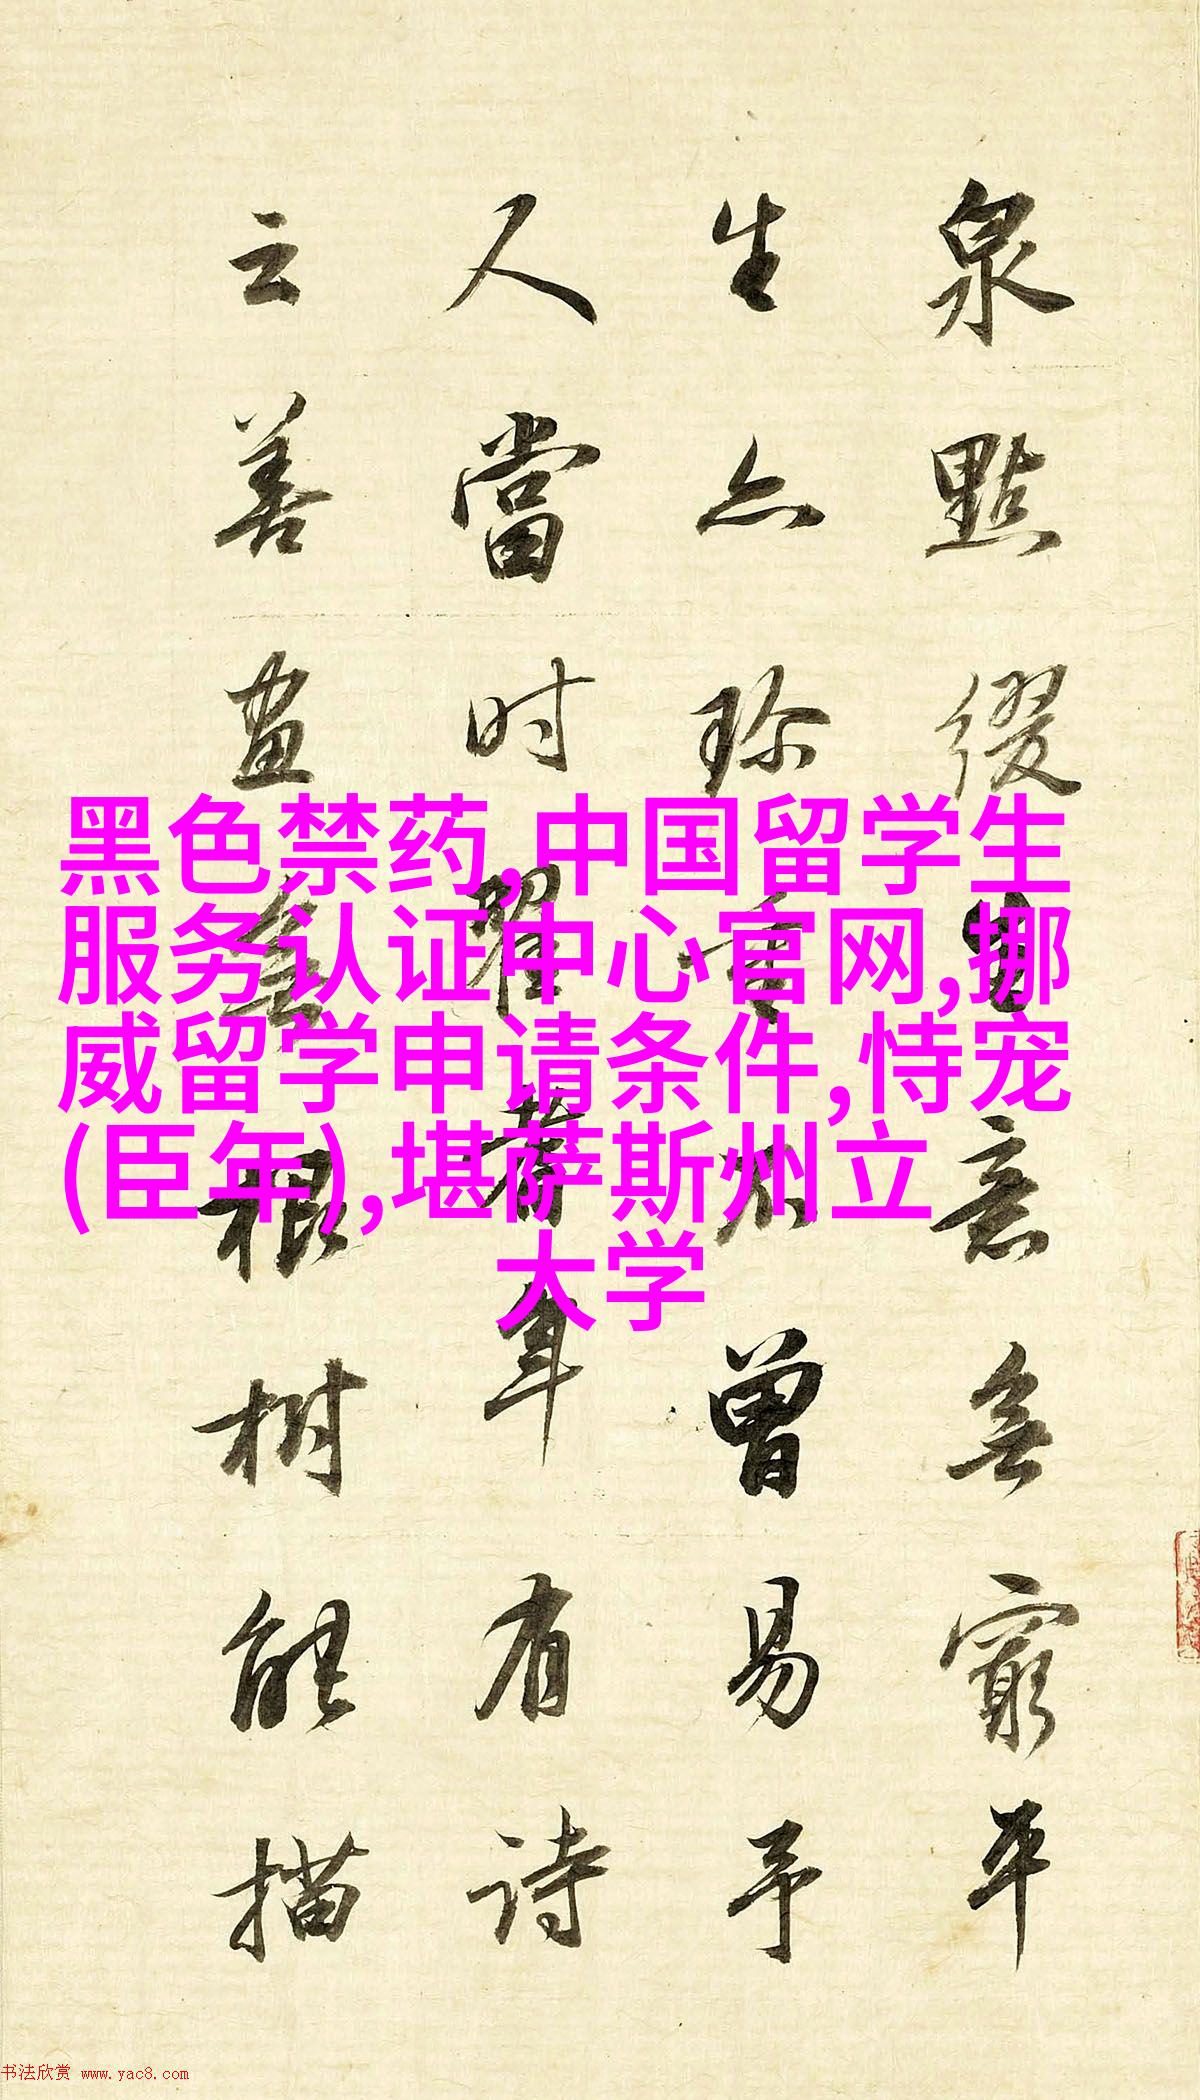 泉點綴意無窮平
生亦珍重不曾易予
人當時翟耆年有詩
云善畫無根樹能描
黑色禁药,中国留学生
服务认证中心官网,挪
威留学申请条件,恃宠
(臣年),堪萨斯州立
大学
书法欣赏 www.yac8.com